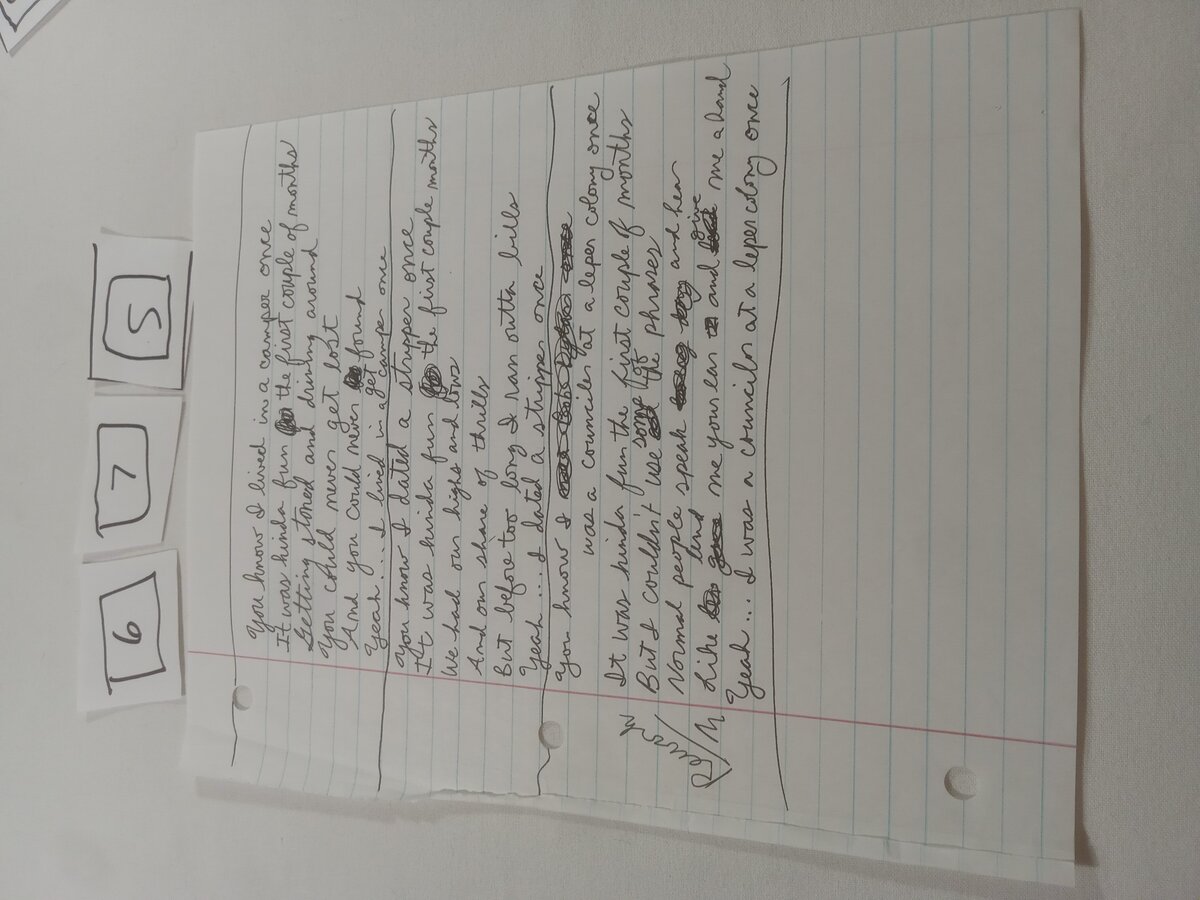 6 7 5
You know I lived in a camper once
It was kinda fun the first couple of months
Getting stoned and driving around
You could never get lost
And you could never get found
Yeah... I lived in a camper once
You know I dated a stripper once
It was kinda fun the first couple months
We had our highs and lows
And our share of thrills
But before too long I ran outta bills
Yeah... I dated a stripper once
You know I
was a counciler at a leper colony once
It was kinda fun the first couple of months
But I couldn't use some of the phrases
Normal people speak and hear
Like lend me your ear and give me a hand
Yeah... I was a councilor at a leper colony once